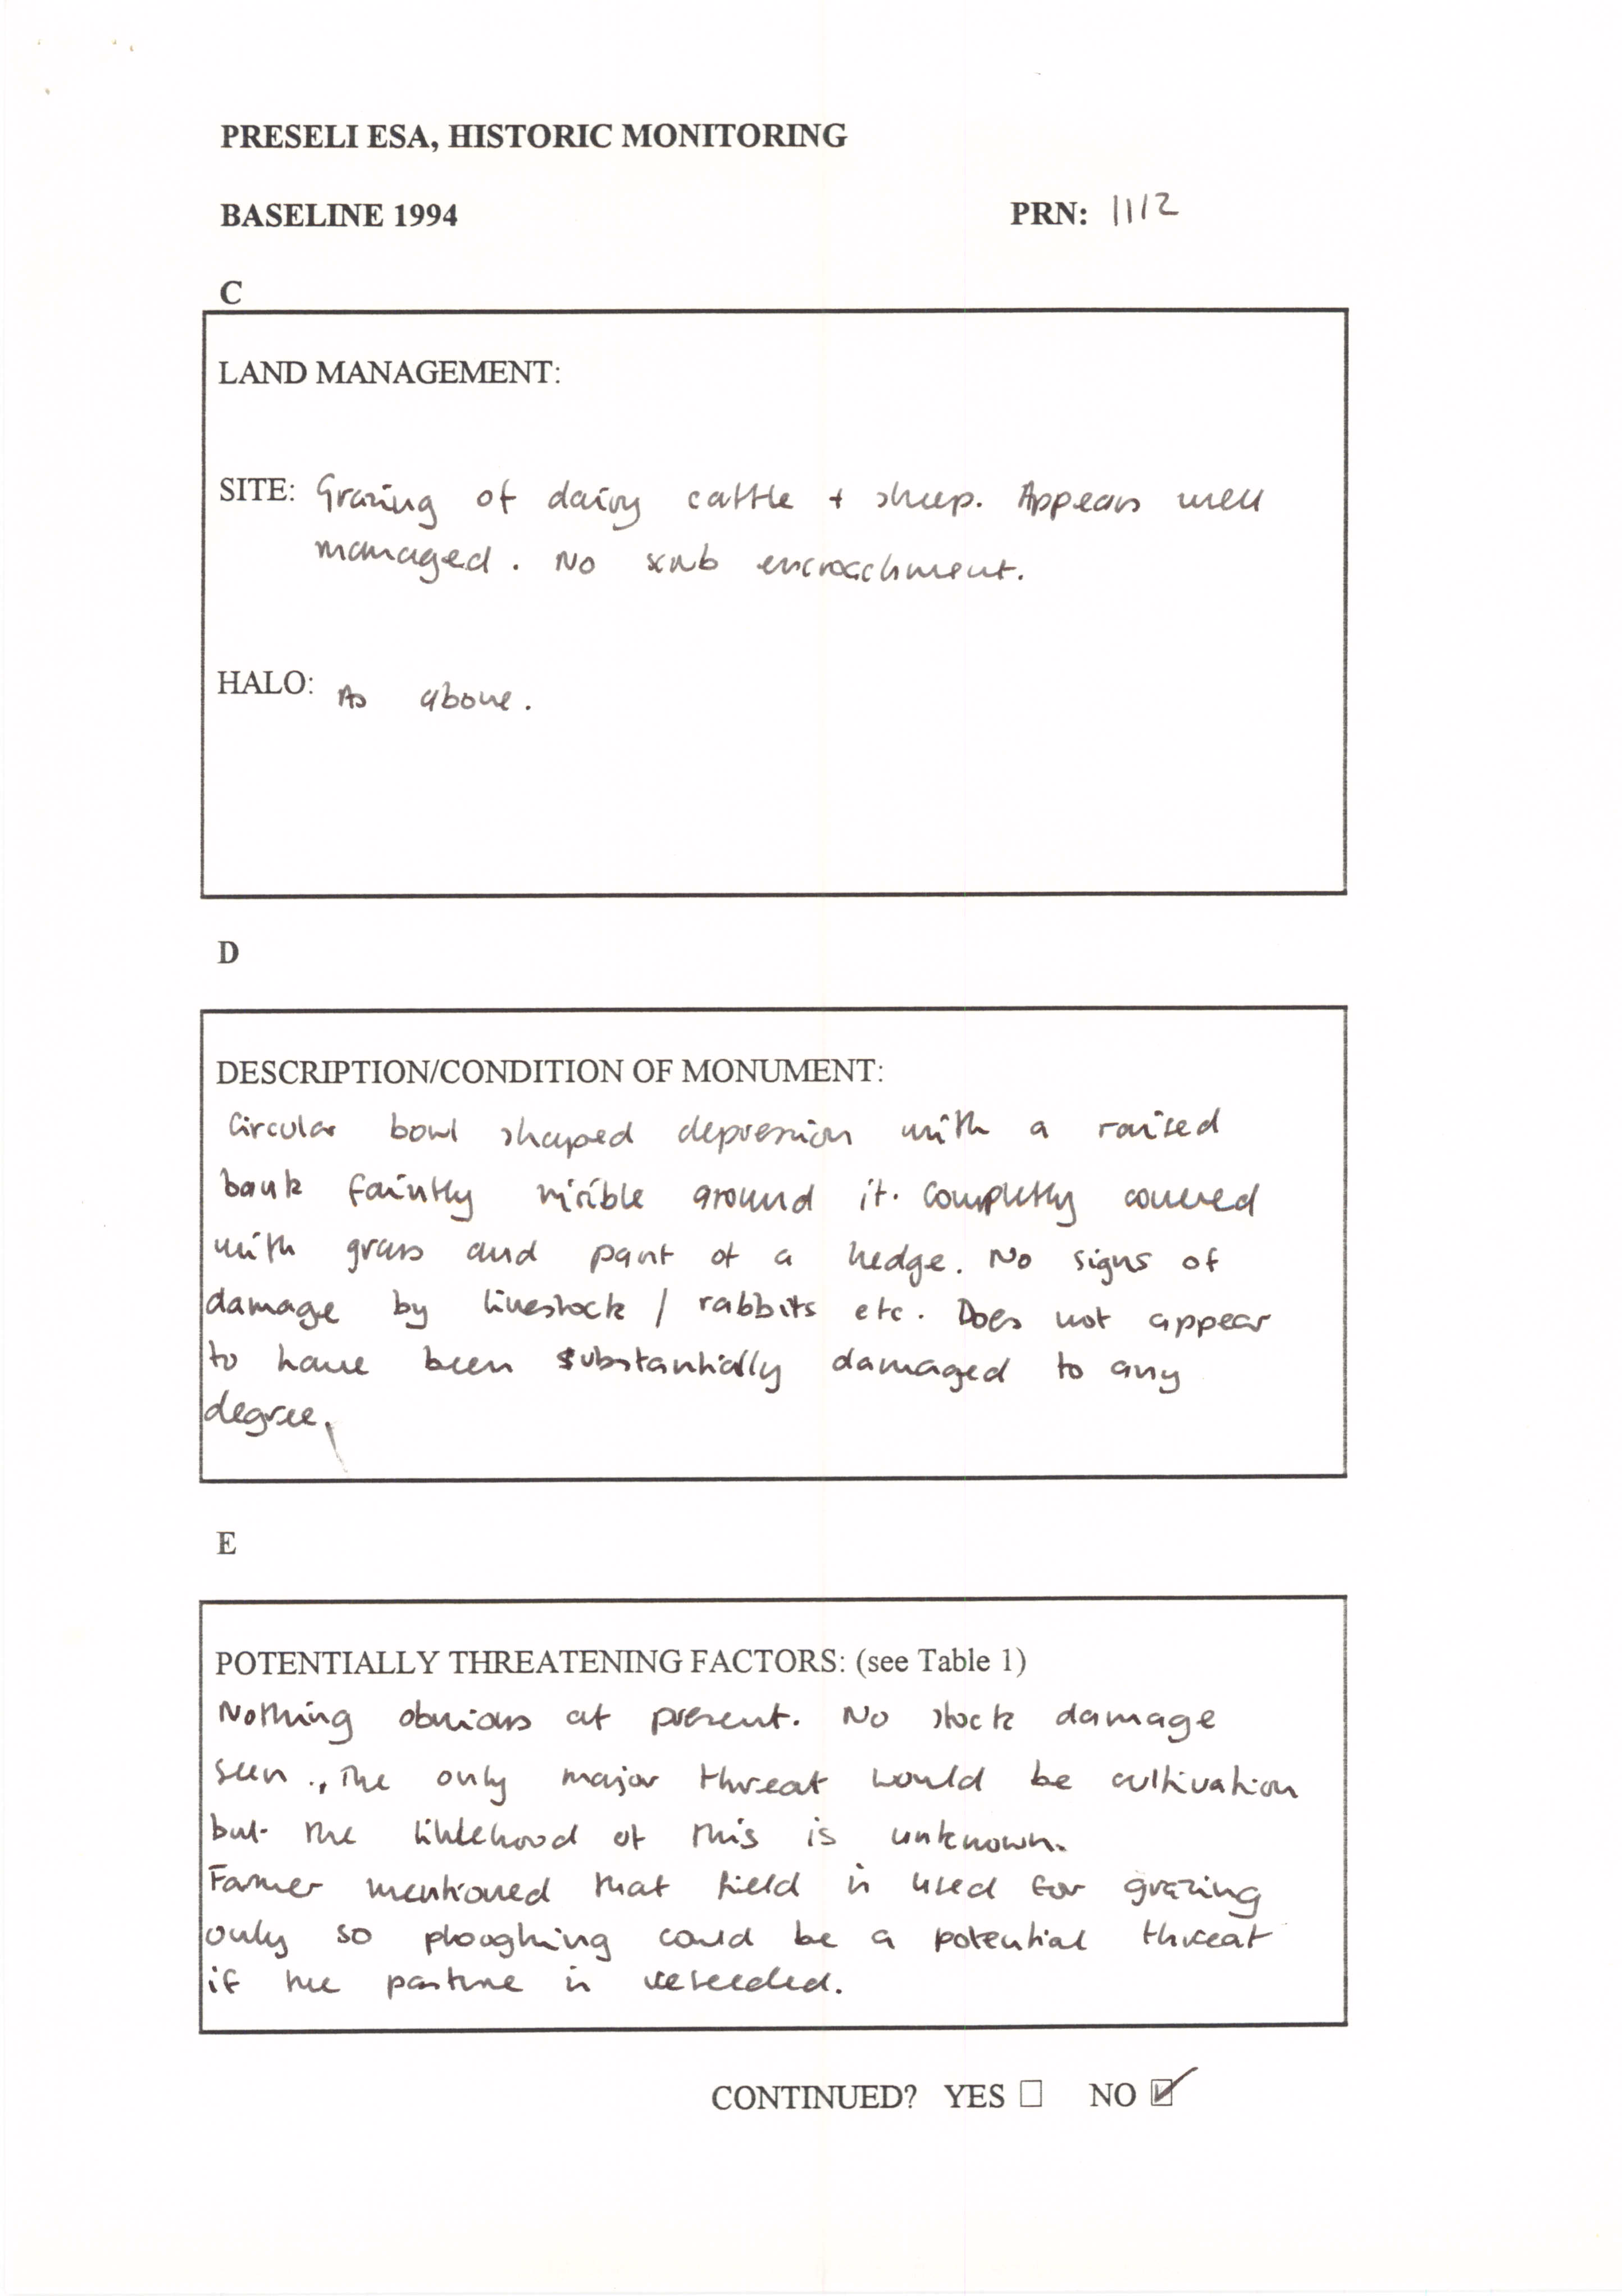 PRESELI ESA, HISTORIC MONITORING
BASELINE 1994
PRN: 1112
C
LAND MANAGEMENT:
SITE: Grazing of dairy cattle + sheep. Appears well
managed. No scrub encroachment.
HALO: As above.
D
DESCRIPTION/CONDITION OF MONUMENT:
Circular bowl shaped depression with a raised
bank faintly visible around it. Completly covered
with grass and part of a hedge. No signs of
damage by livestock / rabbits etc. Does not appear
to have been substantially damaged to any
degree.
E
POTENTIALLY THREATENING FACTORS: (see Table 1)
Nothing obvious at present. No stock damage
seen., The only major threat would be cultivation
but the liklehood of this is unknown.
Farmer mentioned that field is used for grazing
only so ploughing could be a potential threat
if the pasture is reseeded.
CONTINUED? YES ☐ NO ☑